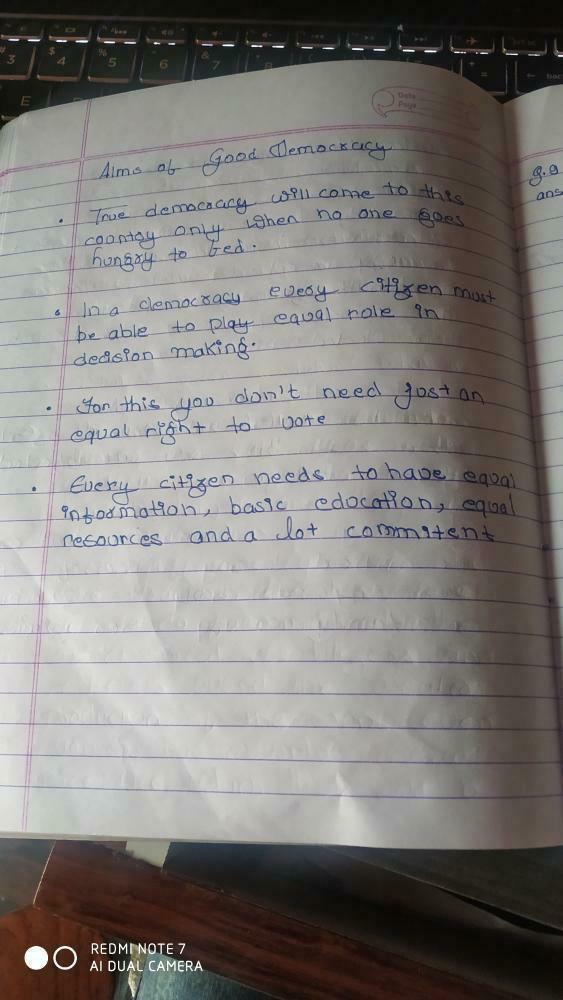 #
3
$
4
%
5
6
&
7
E
Date
Page
Aims of Good Democracy
• True democracy will come to this
country only when no one goes
hungry to bed.
• In a democracy every citizen must
be able to play equal role in
decision making.
• For this you don't need just an
equal right to vote
• Every citizen needs to have equal
information, basic education, equal
resources and a lot commitent
ans
REDMI NOTE 7
AI DUAL CAMERA